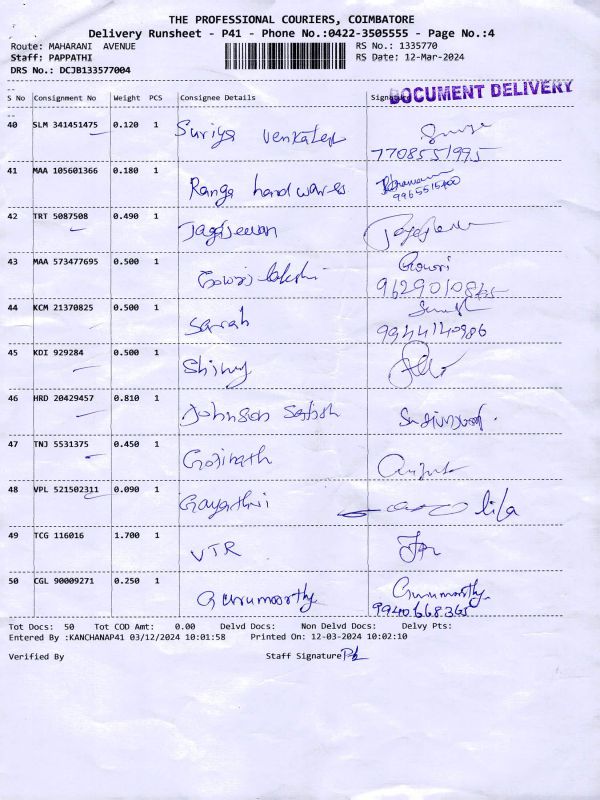 THE PROFESSIONAL COURIERS, COIMBATORE
Delivery Runsheet - P41 - Phone No.:0422-3505555 - Page No.:4
Route: MAHARANI AVENUE
Staff: PAPPATHI
DRS No.: DCJB133577004
RS No.: 1335770
RS Date: 12-Mar-2024
DOCUMENT DELIVERY
S No Consignment No Weight PCS Consignee Details
40 SLM 341451475 0.120 1 Suriya Venkatesh
7708551995
41 MAA 105601366 0.180 1 Ranga hand waves
9965515400
42 TRT 5087508 0.490 1 Jagajeevan
43 MAA 573477695 0.500 1 Gowri lakshmi Gowri
44 KCM 21370825 0.500 1 Sarah
9944140986
45 KDI 929284 0.500 1 Shiny
46 HRD 20429457 0.810 1 Johnson Satish
47 TNJ 5531375 0.450 1 Gopinath
48 VPL 521502311 0.090 1 Gayathri lila
49 TCG 116016 1.700 1 VTR
50 CGL 90009271 0.250 1 Gurumoorthy Gurumoorthy
9940668365
Tot Docs: 50 Tot COD Amt: 0.00 Delvd Docs: Non Delvd Docs: Delvy Pts:
Entered By :KANCHANAP41 03/12/2024 10:01:58 Printed On: 12-03-2024 10:02:10
Verified By Staff Signature